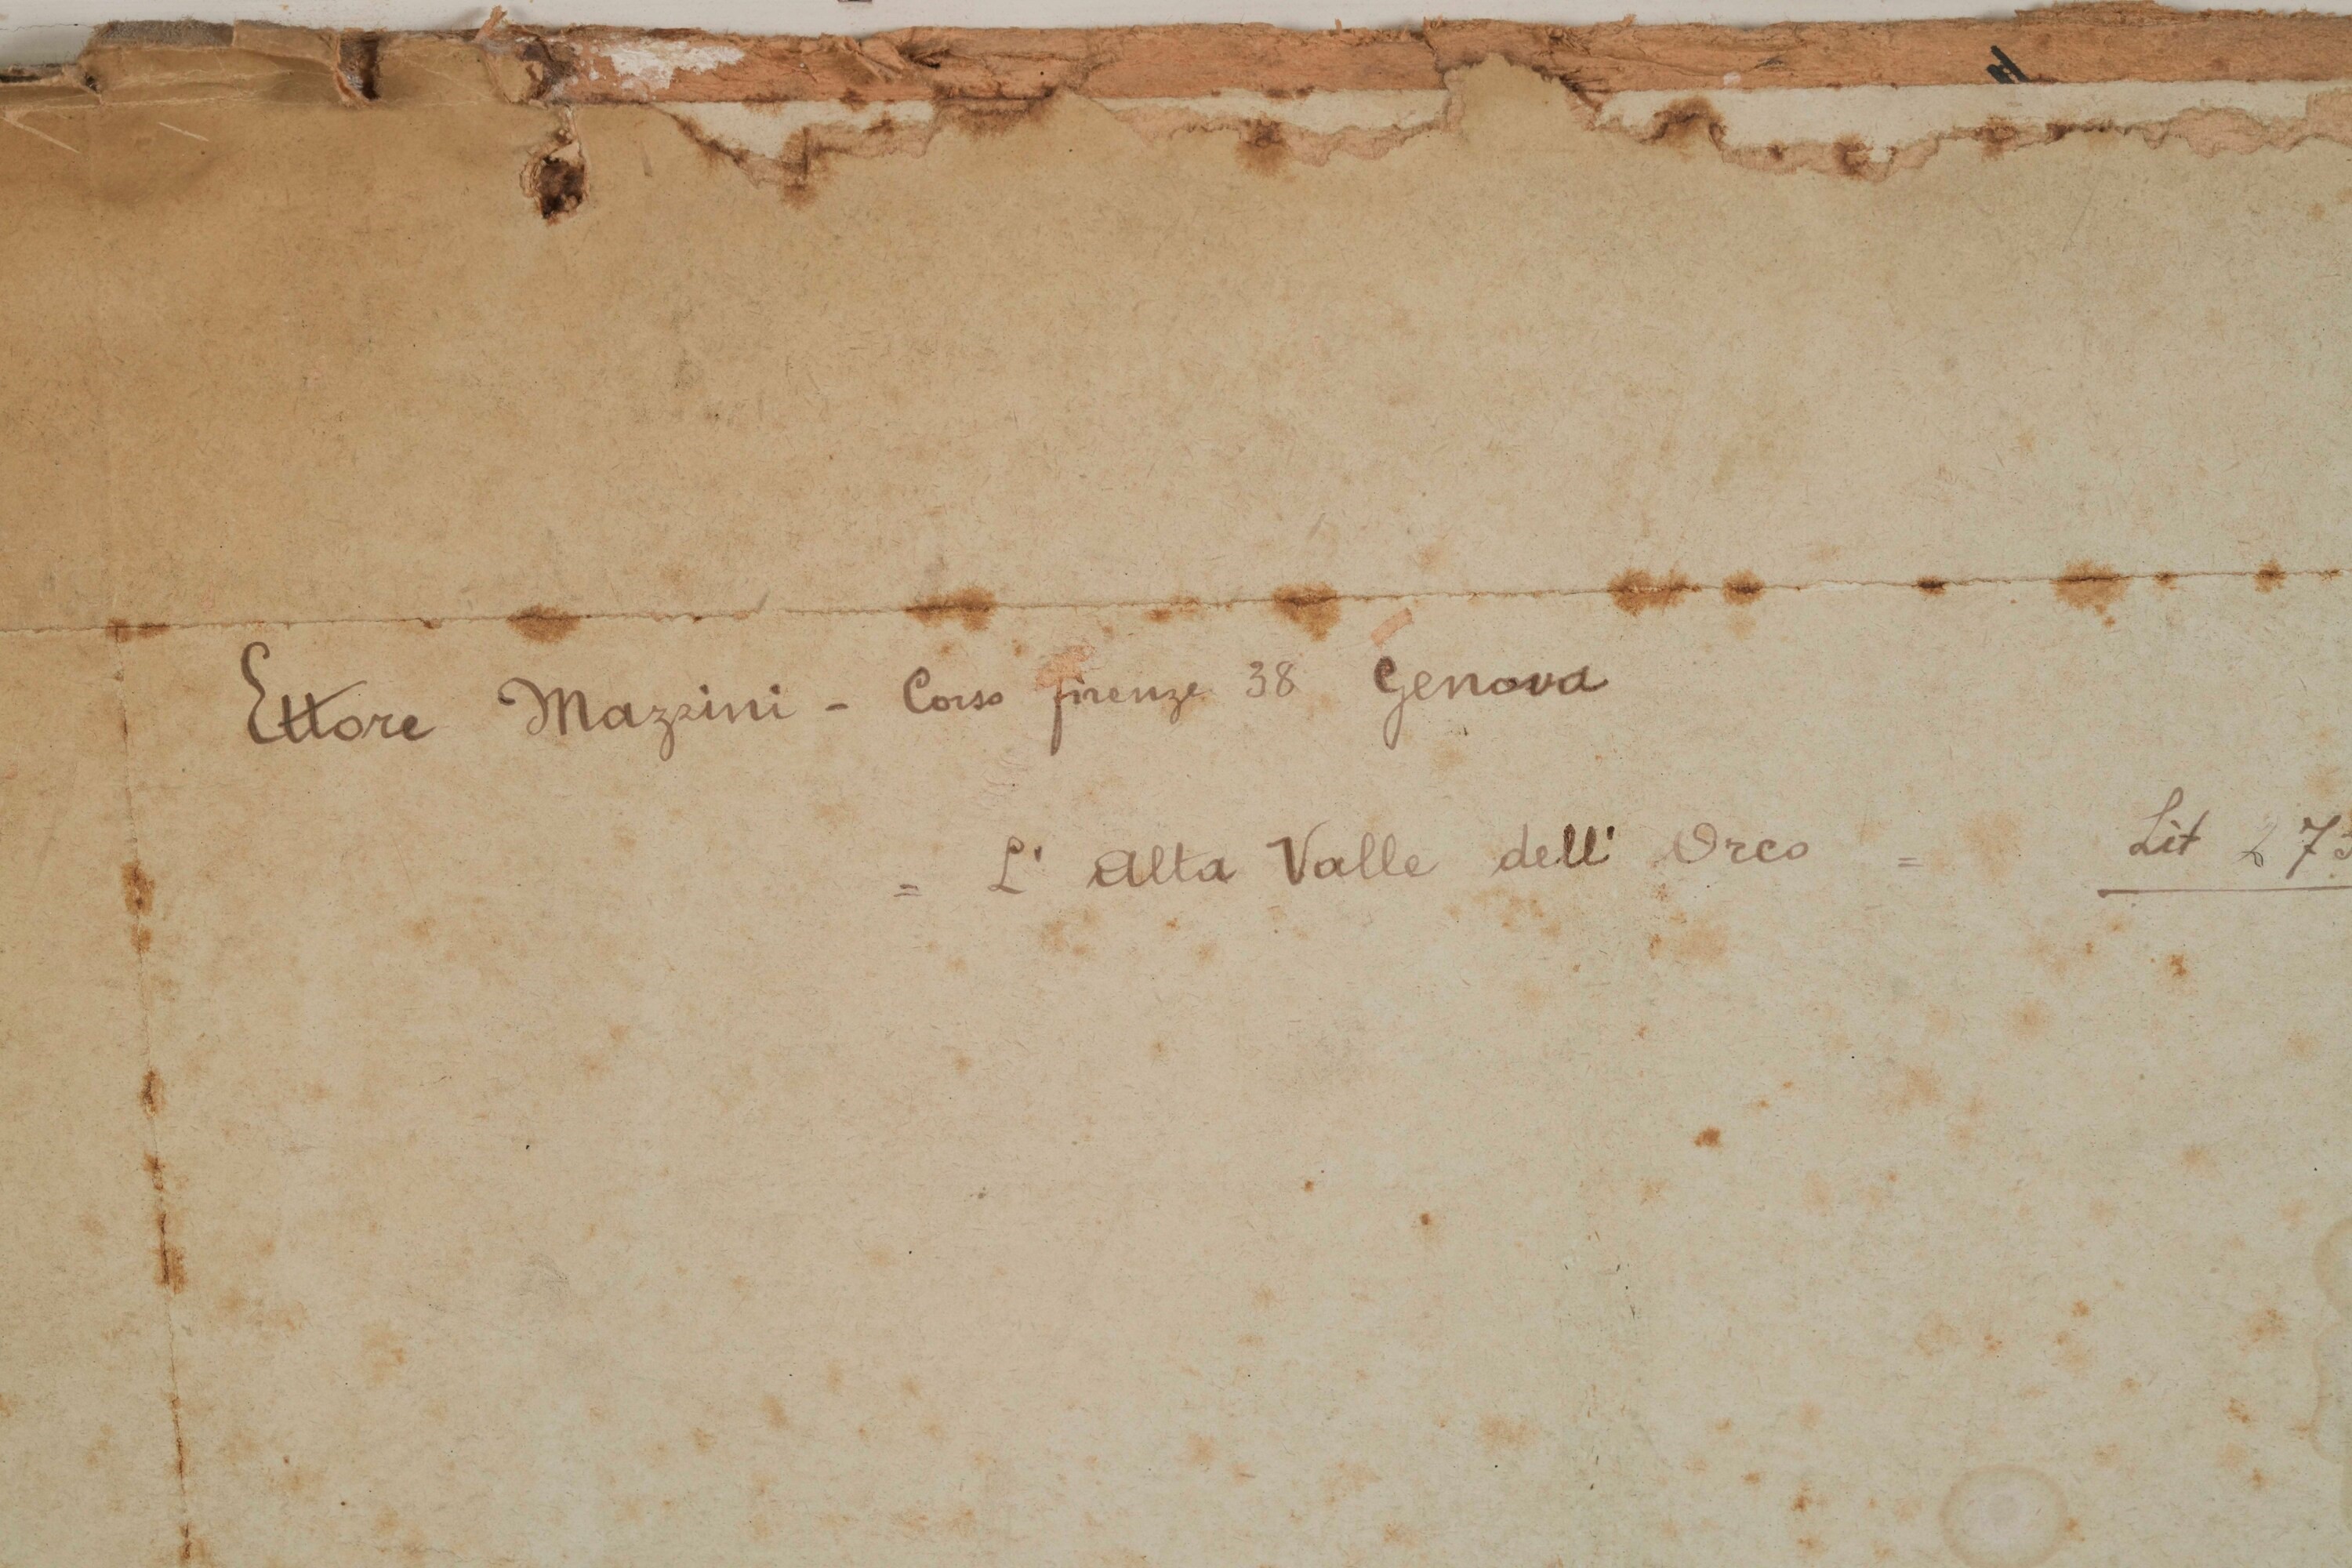 Ettore Mazzini - Corso Firenze 38 Genova
= L' Alta Valle dell' Orco = Lit